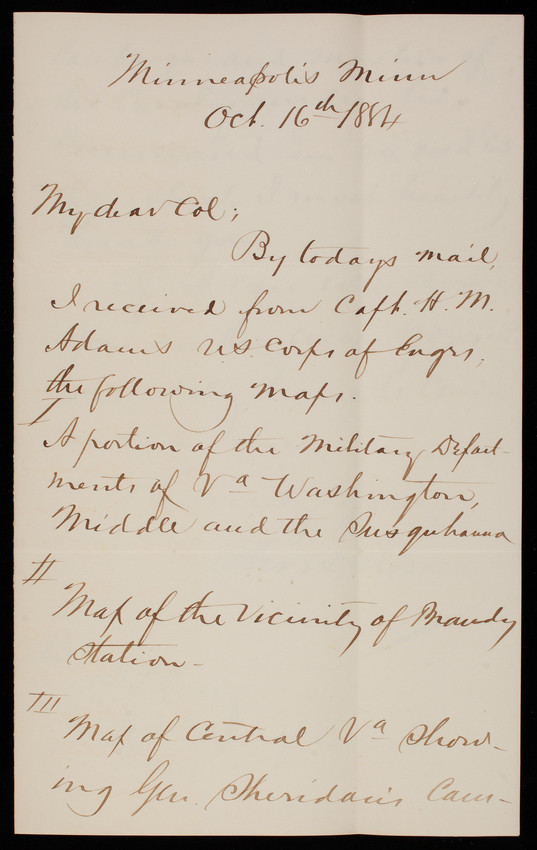 Minneapolis Minn
Oct. 16th 1884
My dear Col;
By todays mail,
I received from Capt. H. M.
Adams U.S. Corps of Engrs,
the following Maps.
I
A portion of the Military Depart-
ments of Va Washington,
Middle and the Susquhanna
II
Map of the Vicinity of Brandy
Station -
III
Map of Central Va show-
ing Gen. Sheridan's Cam-